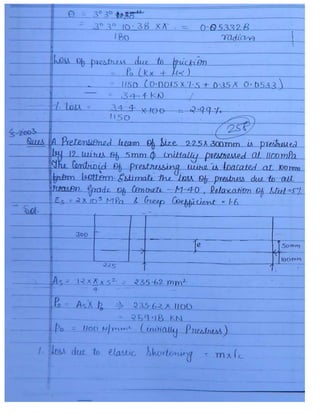 θ = 3°3'
= 3°3'10.38 × π = 0.05332B
180 radians
Loss of prestress due to friction
= P₀ (Kx + μα)
= 1150 (0.0015×7.5 + 0.35× 0.0533)
= 34.4 kN
% loss = 34.4 ×100 = 2.99%
1150
258
S-2003
Ques A Pretensioned beam of size 225×300mm is prestressed
by 12 wires of 5mm ϕ initially prestressed at 1100mPa
The Centroid of prestressing wire is located at 100mm
from bottom Estimate the loss of prestress due to all
reason Grade of Concrete - M-40, Relaxation of Steel = 5%
Es = 2×10⁵ MPa & Creep Coefficient = 1.6
Sol.
300
225
e
50mm
100mm
As = 12×π×5² = 235.62 mm²
4
P₀ = As× ⇒ 235.62 × 1100
= 259.18 KN
P₀ = 1100 N/mm² (initially Prestress)
% loss due to elastic Shortening = m×fc